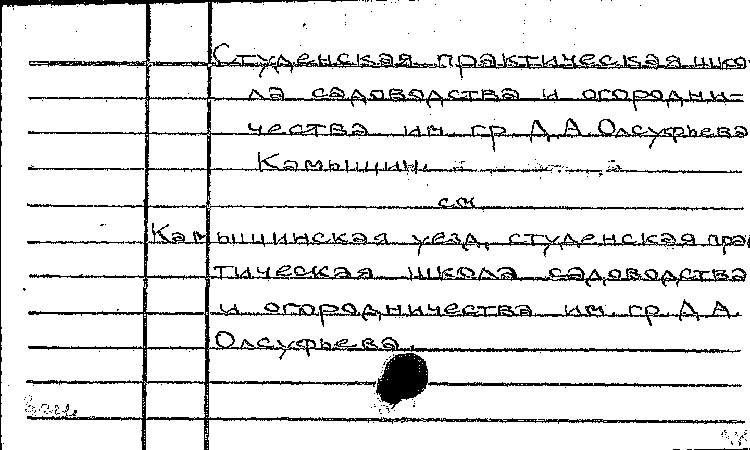 Студенская практическая шко-
ла садоводства и огородни-
чества им. гр. Д. А. Олсуфьева
Камышин.
см.
Камышинская уезд. студенская прак
тическая школа садоводства
и огородничества им. гр. Д. А.
Олсуфьева.